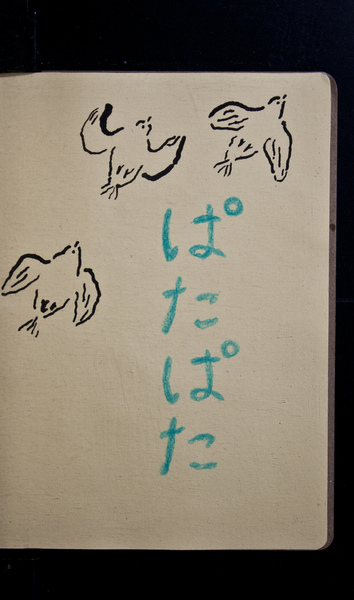 ぱたぱた